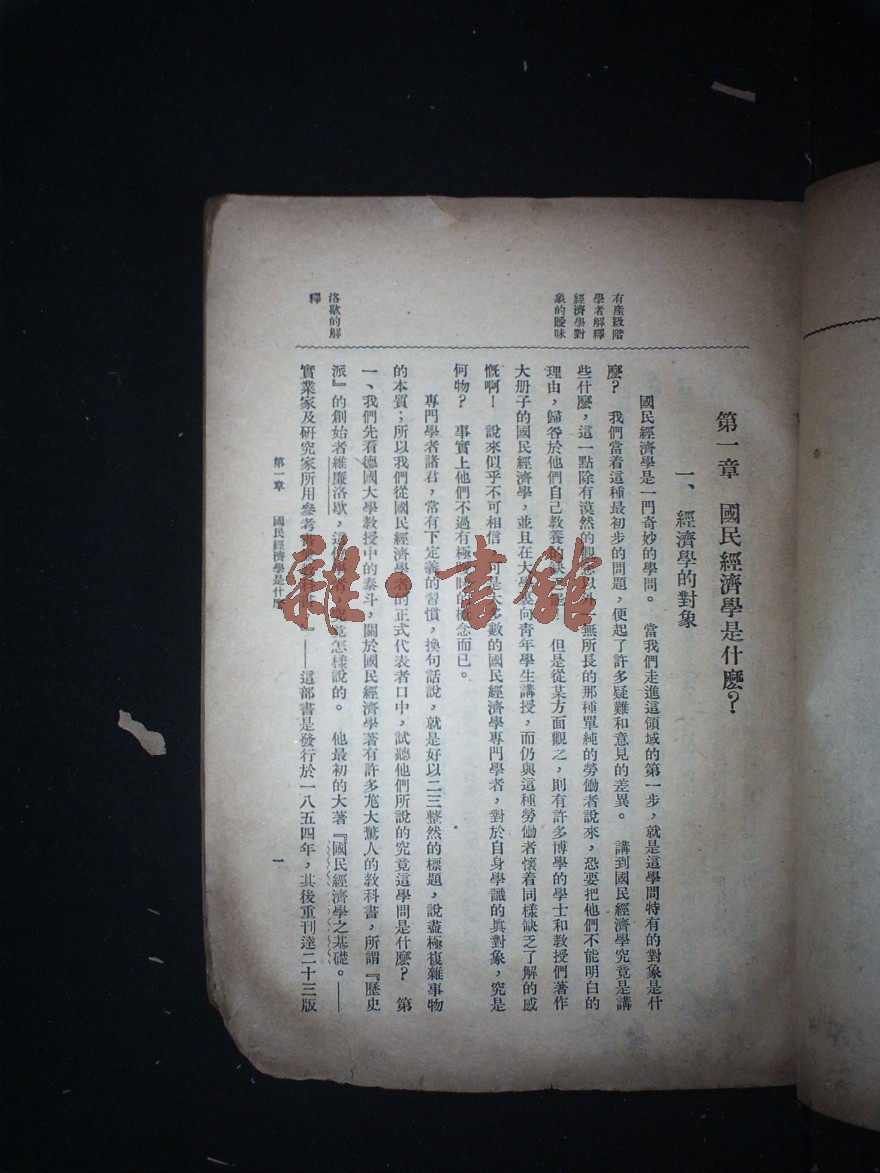 第一章　國民經濟學是什麽？
一、經濟學的對象
有產級階
學者解釋
經濟學對
象的曖味
國民經濟學是一門奇妙的學問。　當我們走進這領域的第一步，就是這學問特有的對象是什
麽？　我們當着這種最初步的問題，便起了許多疑難和意見的差異。　講到國民經濟學究竟是講
些什麽，這一點除有漠然的觀念以外一無所長的那種單純的勞働者說來，恐要把他們不能明白的
理由，歸咎於他們自己教養的缺乏能　但是從某方面觀之，則有許多博學的學士和教授們著作
大册子的國民經濟學，並且在大學裏向青年學生講授，而仍與這種勞働者懷着同樣缺乏了解的感
慨啊！　說來似乎不可相信，可是大多數的國民經濟學專門學者，對於自身學識的眞對象，究是
何物？　事實上他們不過有極　的概念而已。
專門學者諸君，常有下定義的習慣，換句話說，就是好以二三整然的標題，說盡極複雜事物
的本質；所以我們從國民經濟學者的正式代表者口中，試聽他們所說的究竟這學問是什麽？　第
一、我們先看德國大學教授中的泰斗，關於國民經濟學著有許多尨大驚人的教科書，所謂『歷史
洛歇的解
釋
派』的創始者維廉洛歇，這個學者，究竟怎樣說的。　他最初的大著『國民經濟學之基礎。——
實業家及研究家所用參考書　教科書』——這部書是發行於一八五四年，其後重刊達二十三版
第一章　國民經濟學是什麽
一
雜·書館